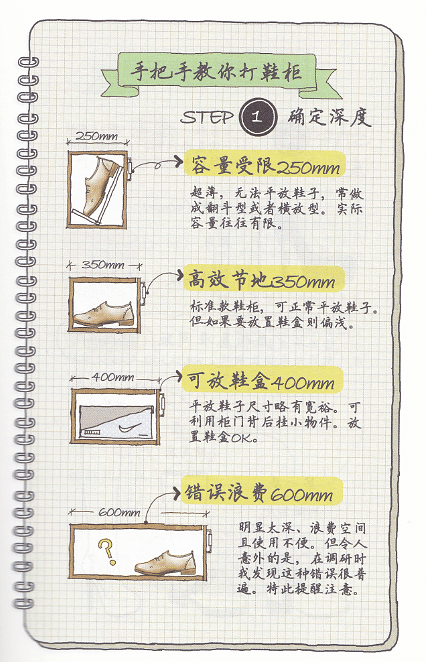 手把手教你打鞋柜
STEP 1 确定深度
250mm
容量受限250mm
超薄，无法平放鞋子，常做
成翻斗型或者横放型。实际
容量往往有限。
350mm
高效节地350mm
标准款鞋柜，可正常平放鞋子。
但如果要放置鞋盒则偏浅。
400mm
可放鞋盒400mm
平放鞋子尺寸略有宽裕。可
利用柜门背后挂小物件。放
置鞋盒OK。
600mm
错误浪费600mm
?
明显太深、浪费空间
且使用不便。但令人
意外的是，在调研时
我发现这种错误很普
遍。特此提醒注意。